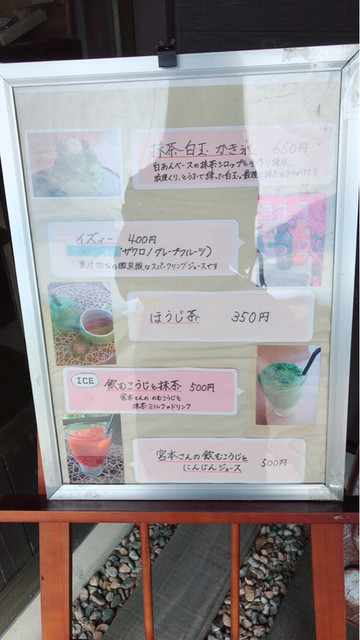 抹茶白玉かき氷 650円
白あんベースの抹茶シロップと
イズィー 400円
(ザクロ/グレープフルーツ)
果汁70%の微炭酸なスパークリングジュースです
ほうじ茶 350円
ICE 飲むこうじと抹茶 500円
宮本さんの のむこうじと
抹茶ミルクのドリンク
宮本さんの飲むこうじと
にんじんジュース 500円